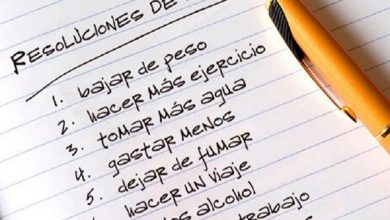 RESOLUCIONES DE
1. bajar de peso
2. hacer más ejercicio
3. tomar más agua
4. gastar menos
5. dejar de fumar
hacer un viaje
alcohol
trabajo